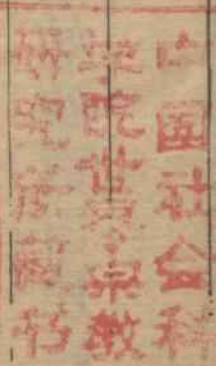 中国社会科
学院世界宗教
研究所藏书